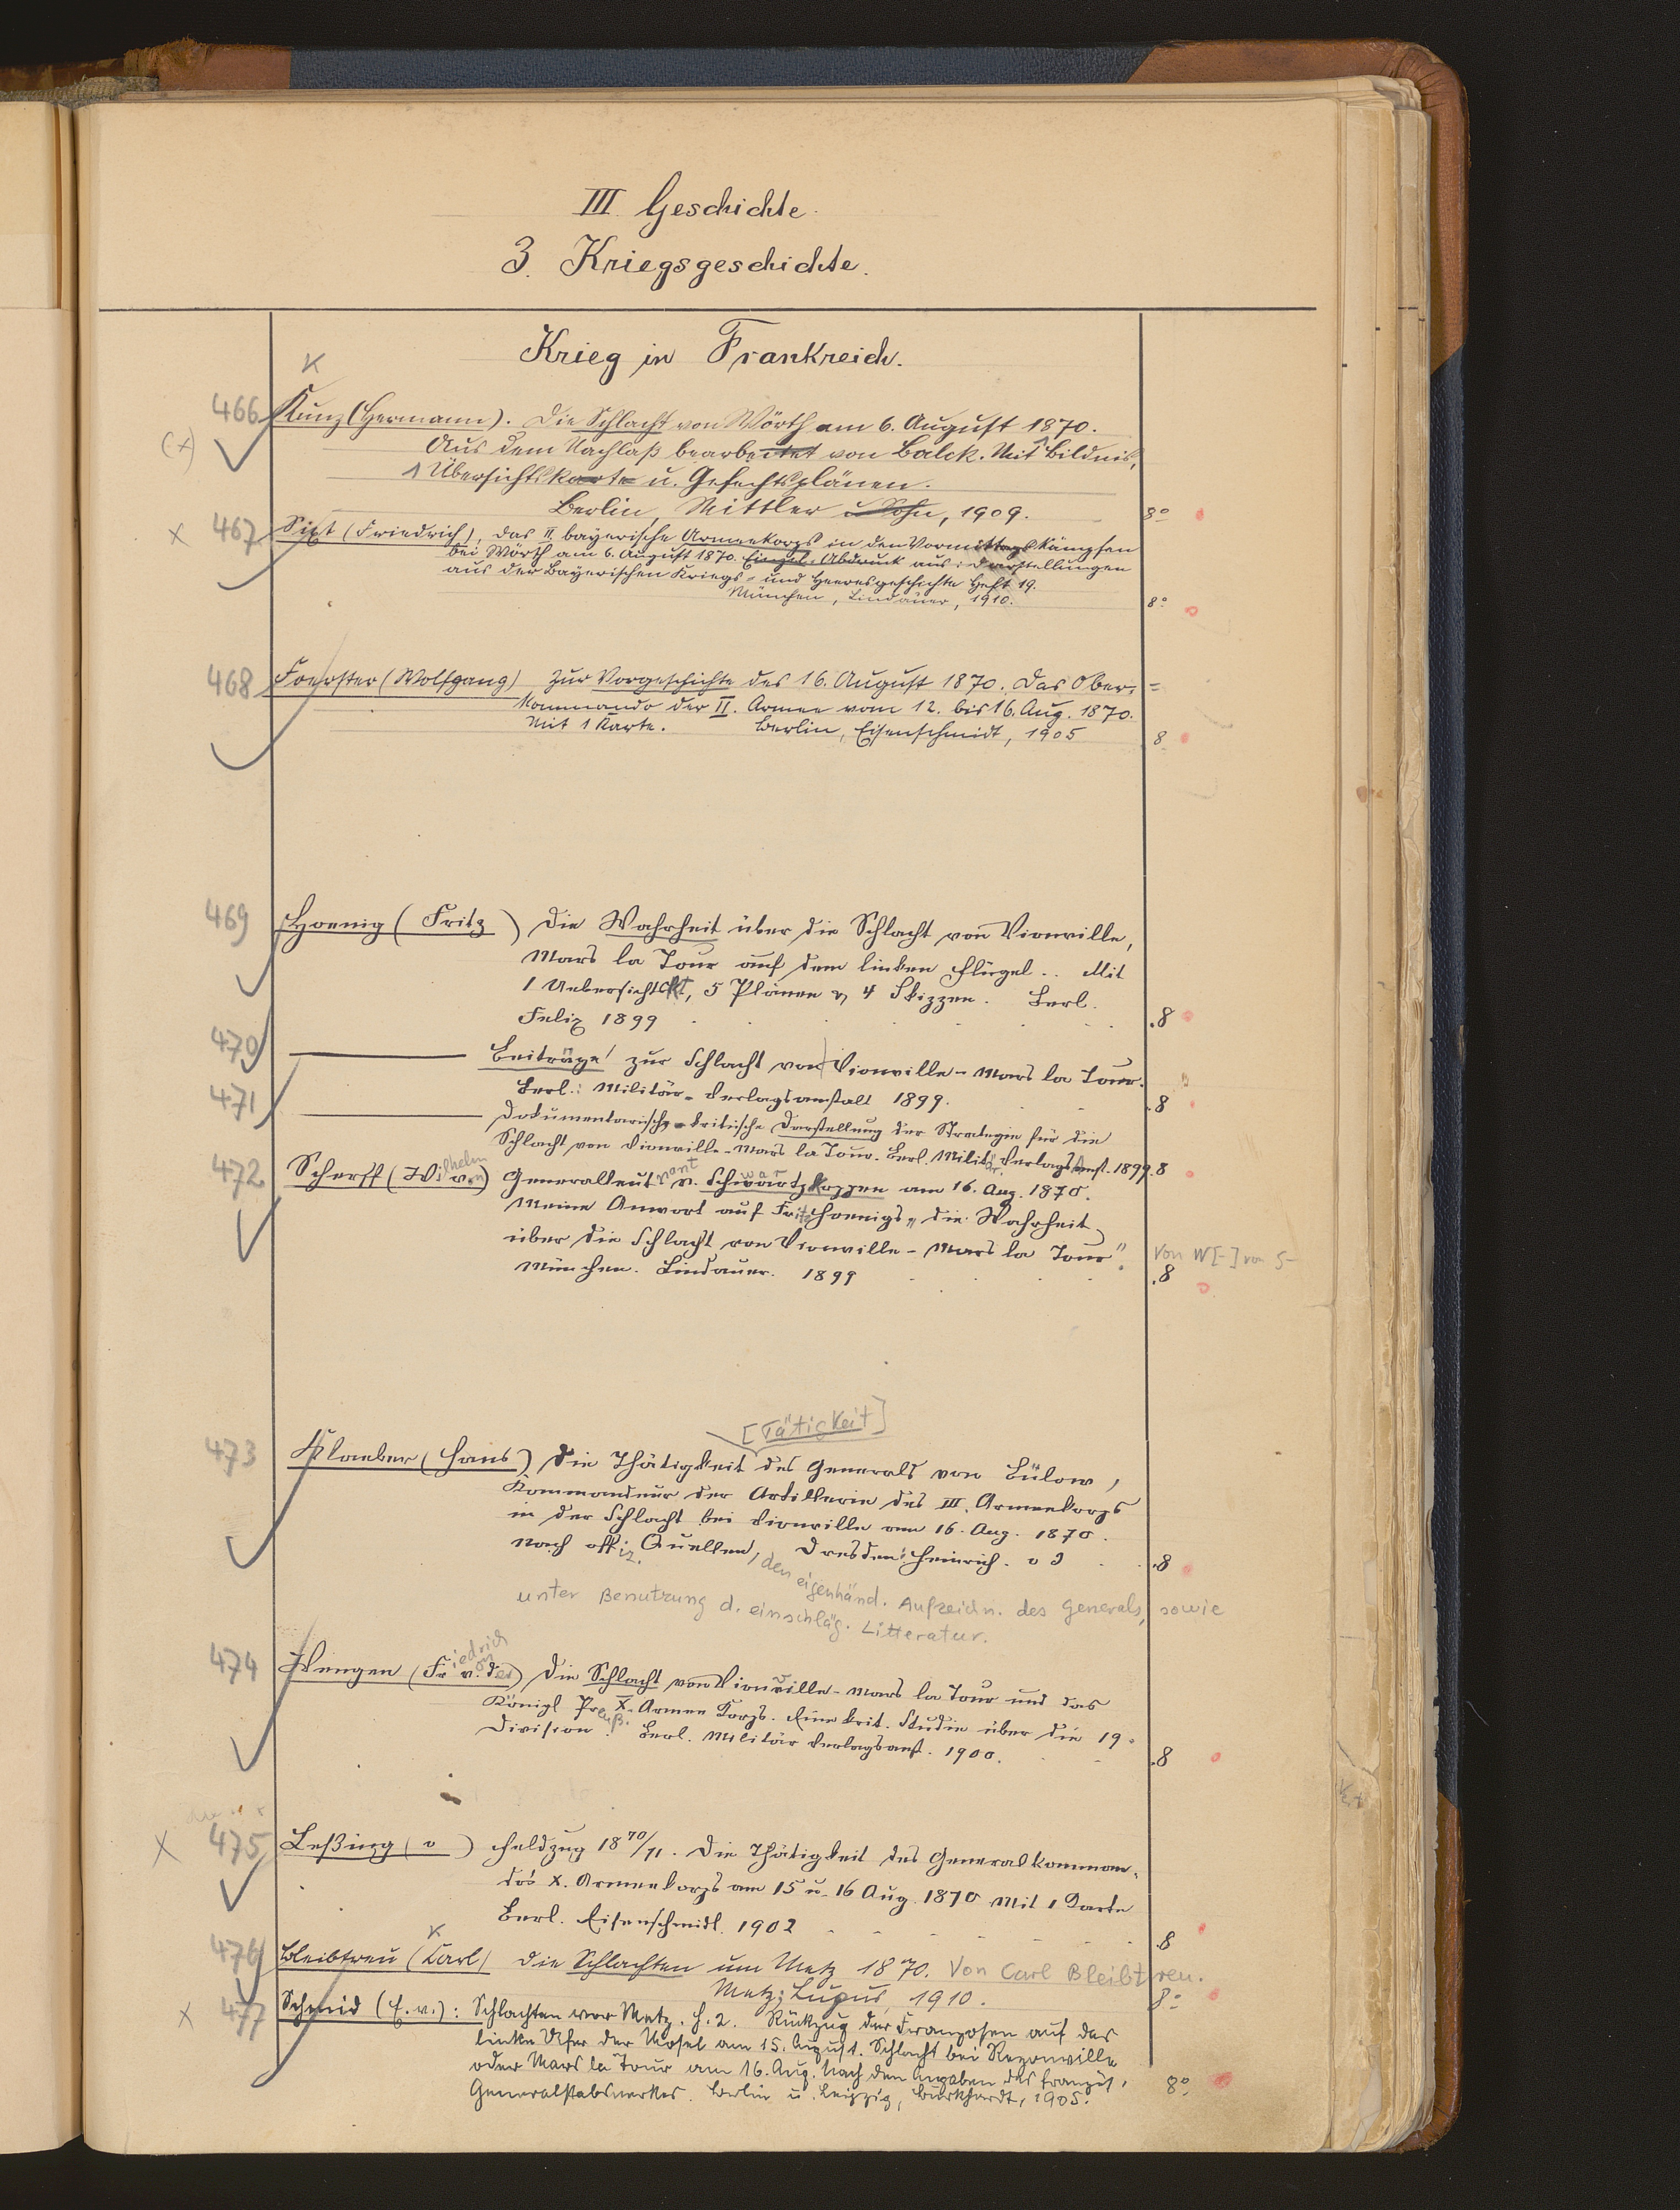 III. Geschichte.
3. Kriegsgeschichte.
Krieg in Frankreich.
x
466 Kunz (Hermann). Die Schlacht von Wörth am 6. August 1870.
(x) Aus dem Nachlaß bearbeitet von Balck. Mit 1 Bildnis,
1 Übersichtskarte u. Gefechtsplänen.
Berlin, Mittler u Sohn, 1909. 8°
x 467 Sixt (Friedrich), das II. bayerische Armeekorps in den Vormittagskämpfen
bei Wörth am 6. August 1870. Einzel-Abdruck aus: Darstellungen
aus der Bayerischen Kriegs- und Heeresgeschichte Heft 19.
München, Lindauer, 1910. 8°
468 Foerster (Wolfgang) Zur Vorgeschichte des 16. August 1870. Das Ober=
Kommando der II. Armee vom 12. bis 16. Aug. 1870.
Mit 1 Karte. Berlin, Eisenschmidt, 1905 8
469 Hoenig (Fritz) Die Wahrheit über die Schlacht von Vionville,
Mars la Tour auf dem linken Flügel.. Mit
1 Uebersichtskt, 5 Plänen u 4 Skizzen. Berl.
Felix 1899 8
470 Beiträge zur Schlacht von Vionville-Mars la Tour.
Berl.: Militär-Verlagsanstalt 1899. 8
471 Dokumentarisch-kritische Darstellung der Strategie für die
Schlacht von Vionville-Mars la Tour. Berl. Militär Verlagsanst. 1899. 8
472 Scherff (Wilhelm von) Generalleutnant v. Schwartzkoppen am 16. Aug. 1870.
Meine Anwort auf Fritz Hoenigs „Die Wahrheit
über die Schlacht von Vionville-Mars la Tour". Von W[-] von S-
München. Lindauer. 1899 8
[Tätigkeit]
473 Klaeber (Hans) Die Thätigkeit des Generals von Bülow,
Kommandeur der Artillerie des III. Armeekorps
in der Schlacht bei Vionville am 16. Aug. 1870.
Nach offiz. Quellen, Dresden: Heinrich. o J 8
den eigenhänd. Aufzeichn. des Generals, sowie
unter Benutzung d. einschläg. Litteratur.
474 Wengen (Friedrich von der) Die Schlacht von Vionville-Mars la Tour und das
Königl Preuß. X. Armee Korps. Eine krit. Studie über die 19.
Division. Berl. Militär Verlagsanst. 1900. 8
x 475 Leßing (v ) Feldzug 1870/71. Die Thätigkeit des Generalkomman-
dos X. Armeekorps am 15 u. 16 Aug. 1870 Mit 1 Karte
Berl. Eisenschmidt. 1902 8
x
476 Bleibtreu (Karl) Die Schlachten um Metz 1870. Von Carl Bleibtreu.
Metz: Lupus, 1910. 8°
x 477 Schmid (E. v.): Schlachten vor Metz. H. 2. Rückzug der Franzosen auf das
linke Ufer der Mosel am 15. August. Schlacht bei Rezonville
oder Mars la Tour am 16. Aug. Nach den Angaben des französ.
Generalstabswerkes. Berlin u. Leipzig, Burkhardt, 1905. 8°